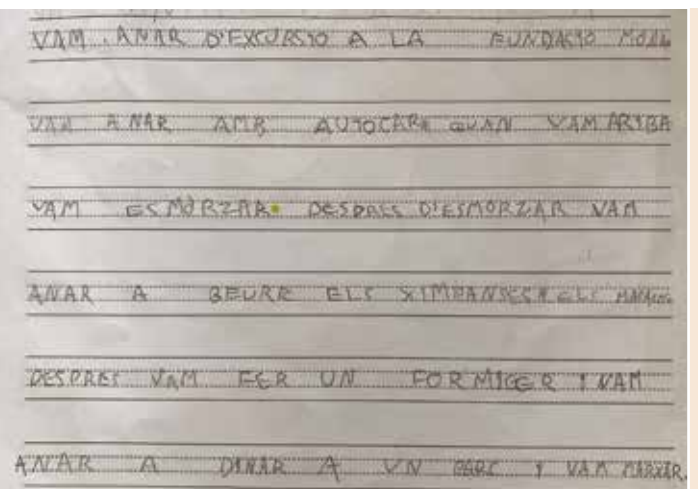 VAM ANAR D'EXCURSIO A LA FUNDACIO MONA
VAM ANAR AMB AUTOCARA QUAN VAM ARIBA
VAM ESMORZAR. DESPRES D'ESMORZAR VAM
ANAR A BEURE ELS XIMPANSES I ELS
DESPRES VAM FER UN FORMIGER I VAM
ANAR A DINAR A UN PARC I VAM MARXAR.